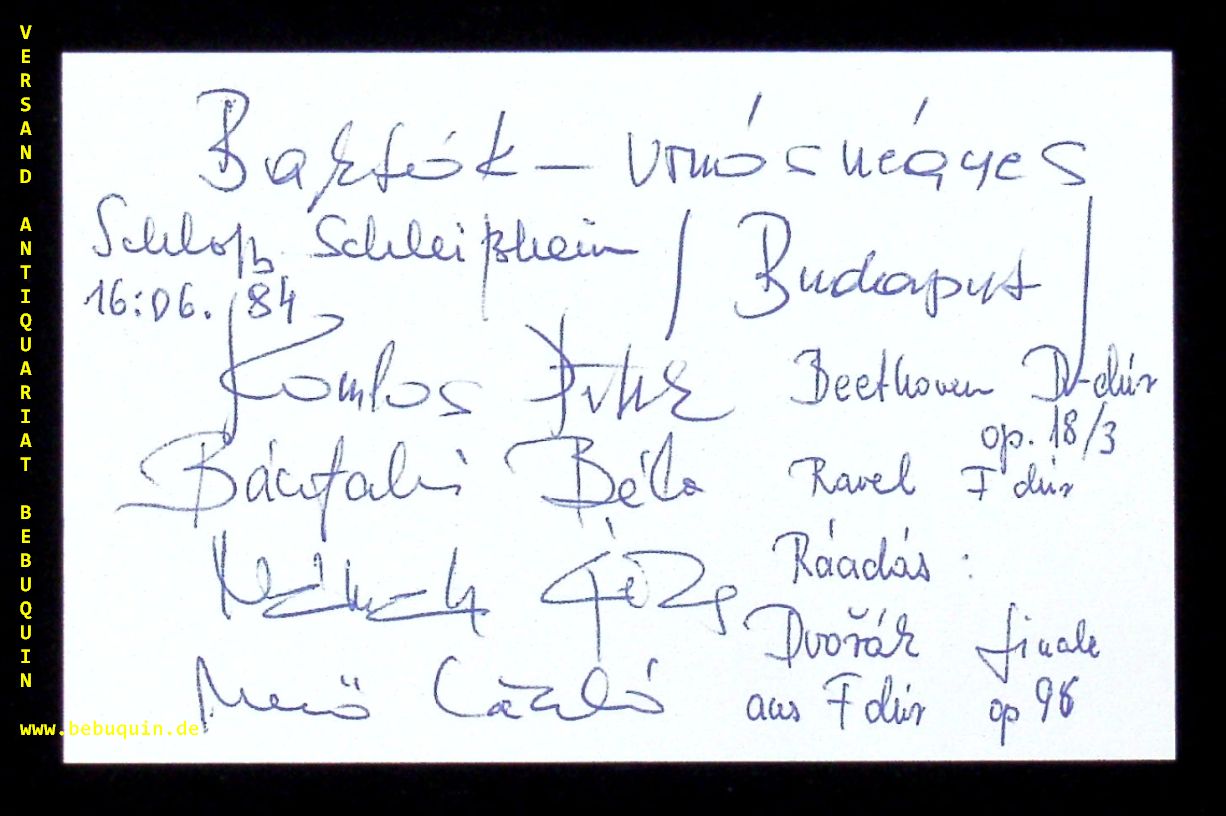 VERSAND ANTIQUARIAT BEBUQUIN
www.bebuquin.de
Bartók – vonósnégyes
Schloß Schleißheim / Budapest /
16.06.84
Komlós Péter
Beethoven D-dúr
op. 18/3
Bánfalvi Béla
Ravel F dúr
Németh Géza
Ráadás :
Dvořák finale
Mező László
aus F dúr op 96